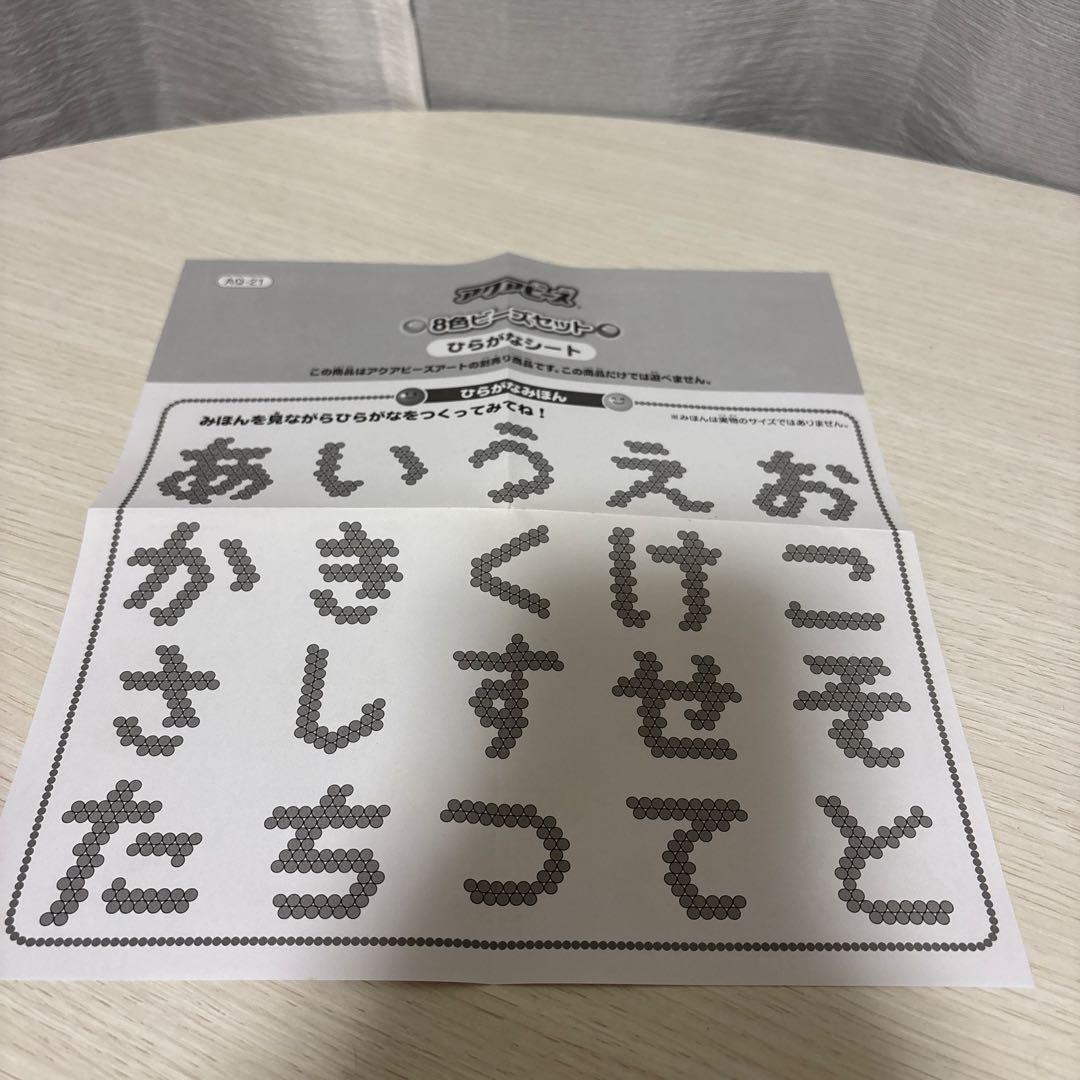 AQ-21
アクアビーズ
8色ビーズセット
ひらがなシート
この商品はアクアビーズアートの別売り商品です。この商品だけでは遊べません。
ひらがなみほん
みほんを見ながらひらがなをつくってみてね!
※みほんは実物のサイズではありません。
あ い う え お
か き く け こ
さ し す せ そ
た ち つ て と